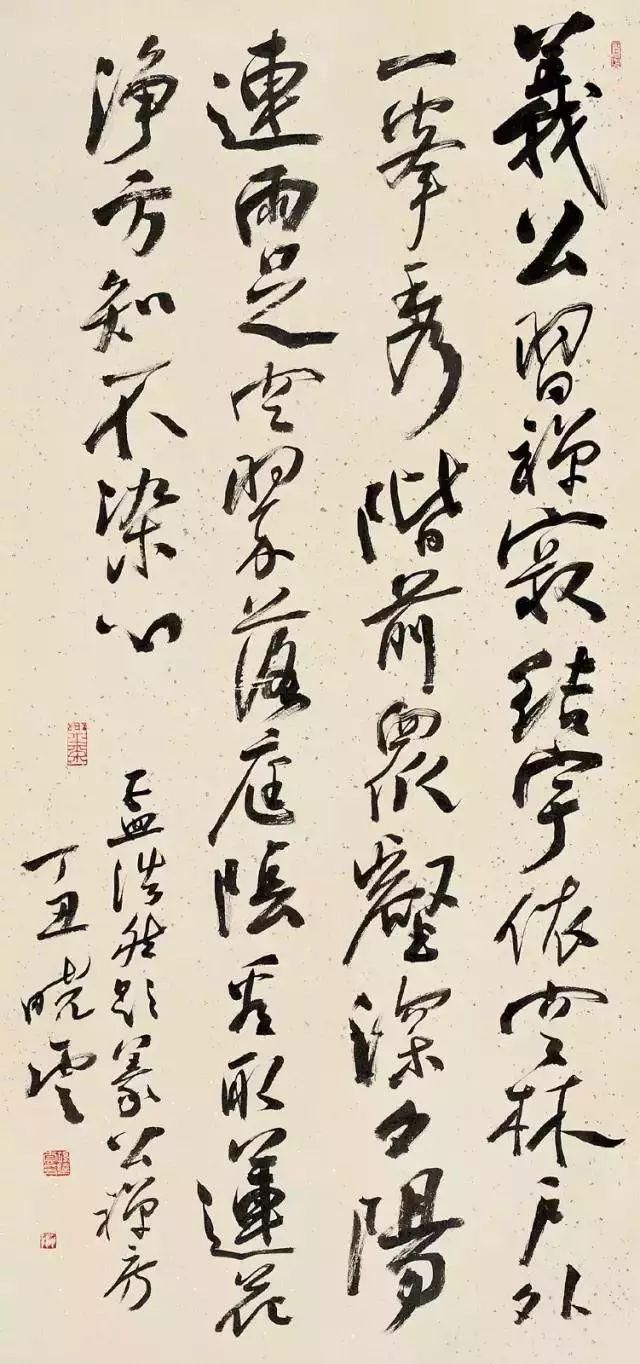 義公習禪寂結宇依空林户外
一峯秀階前衆壑深夕陽
連雨足空翠落庭陰看取蓮花
淨方知不染心
孟浩然題義公禪房
丁丑曉雲